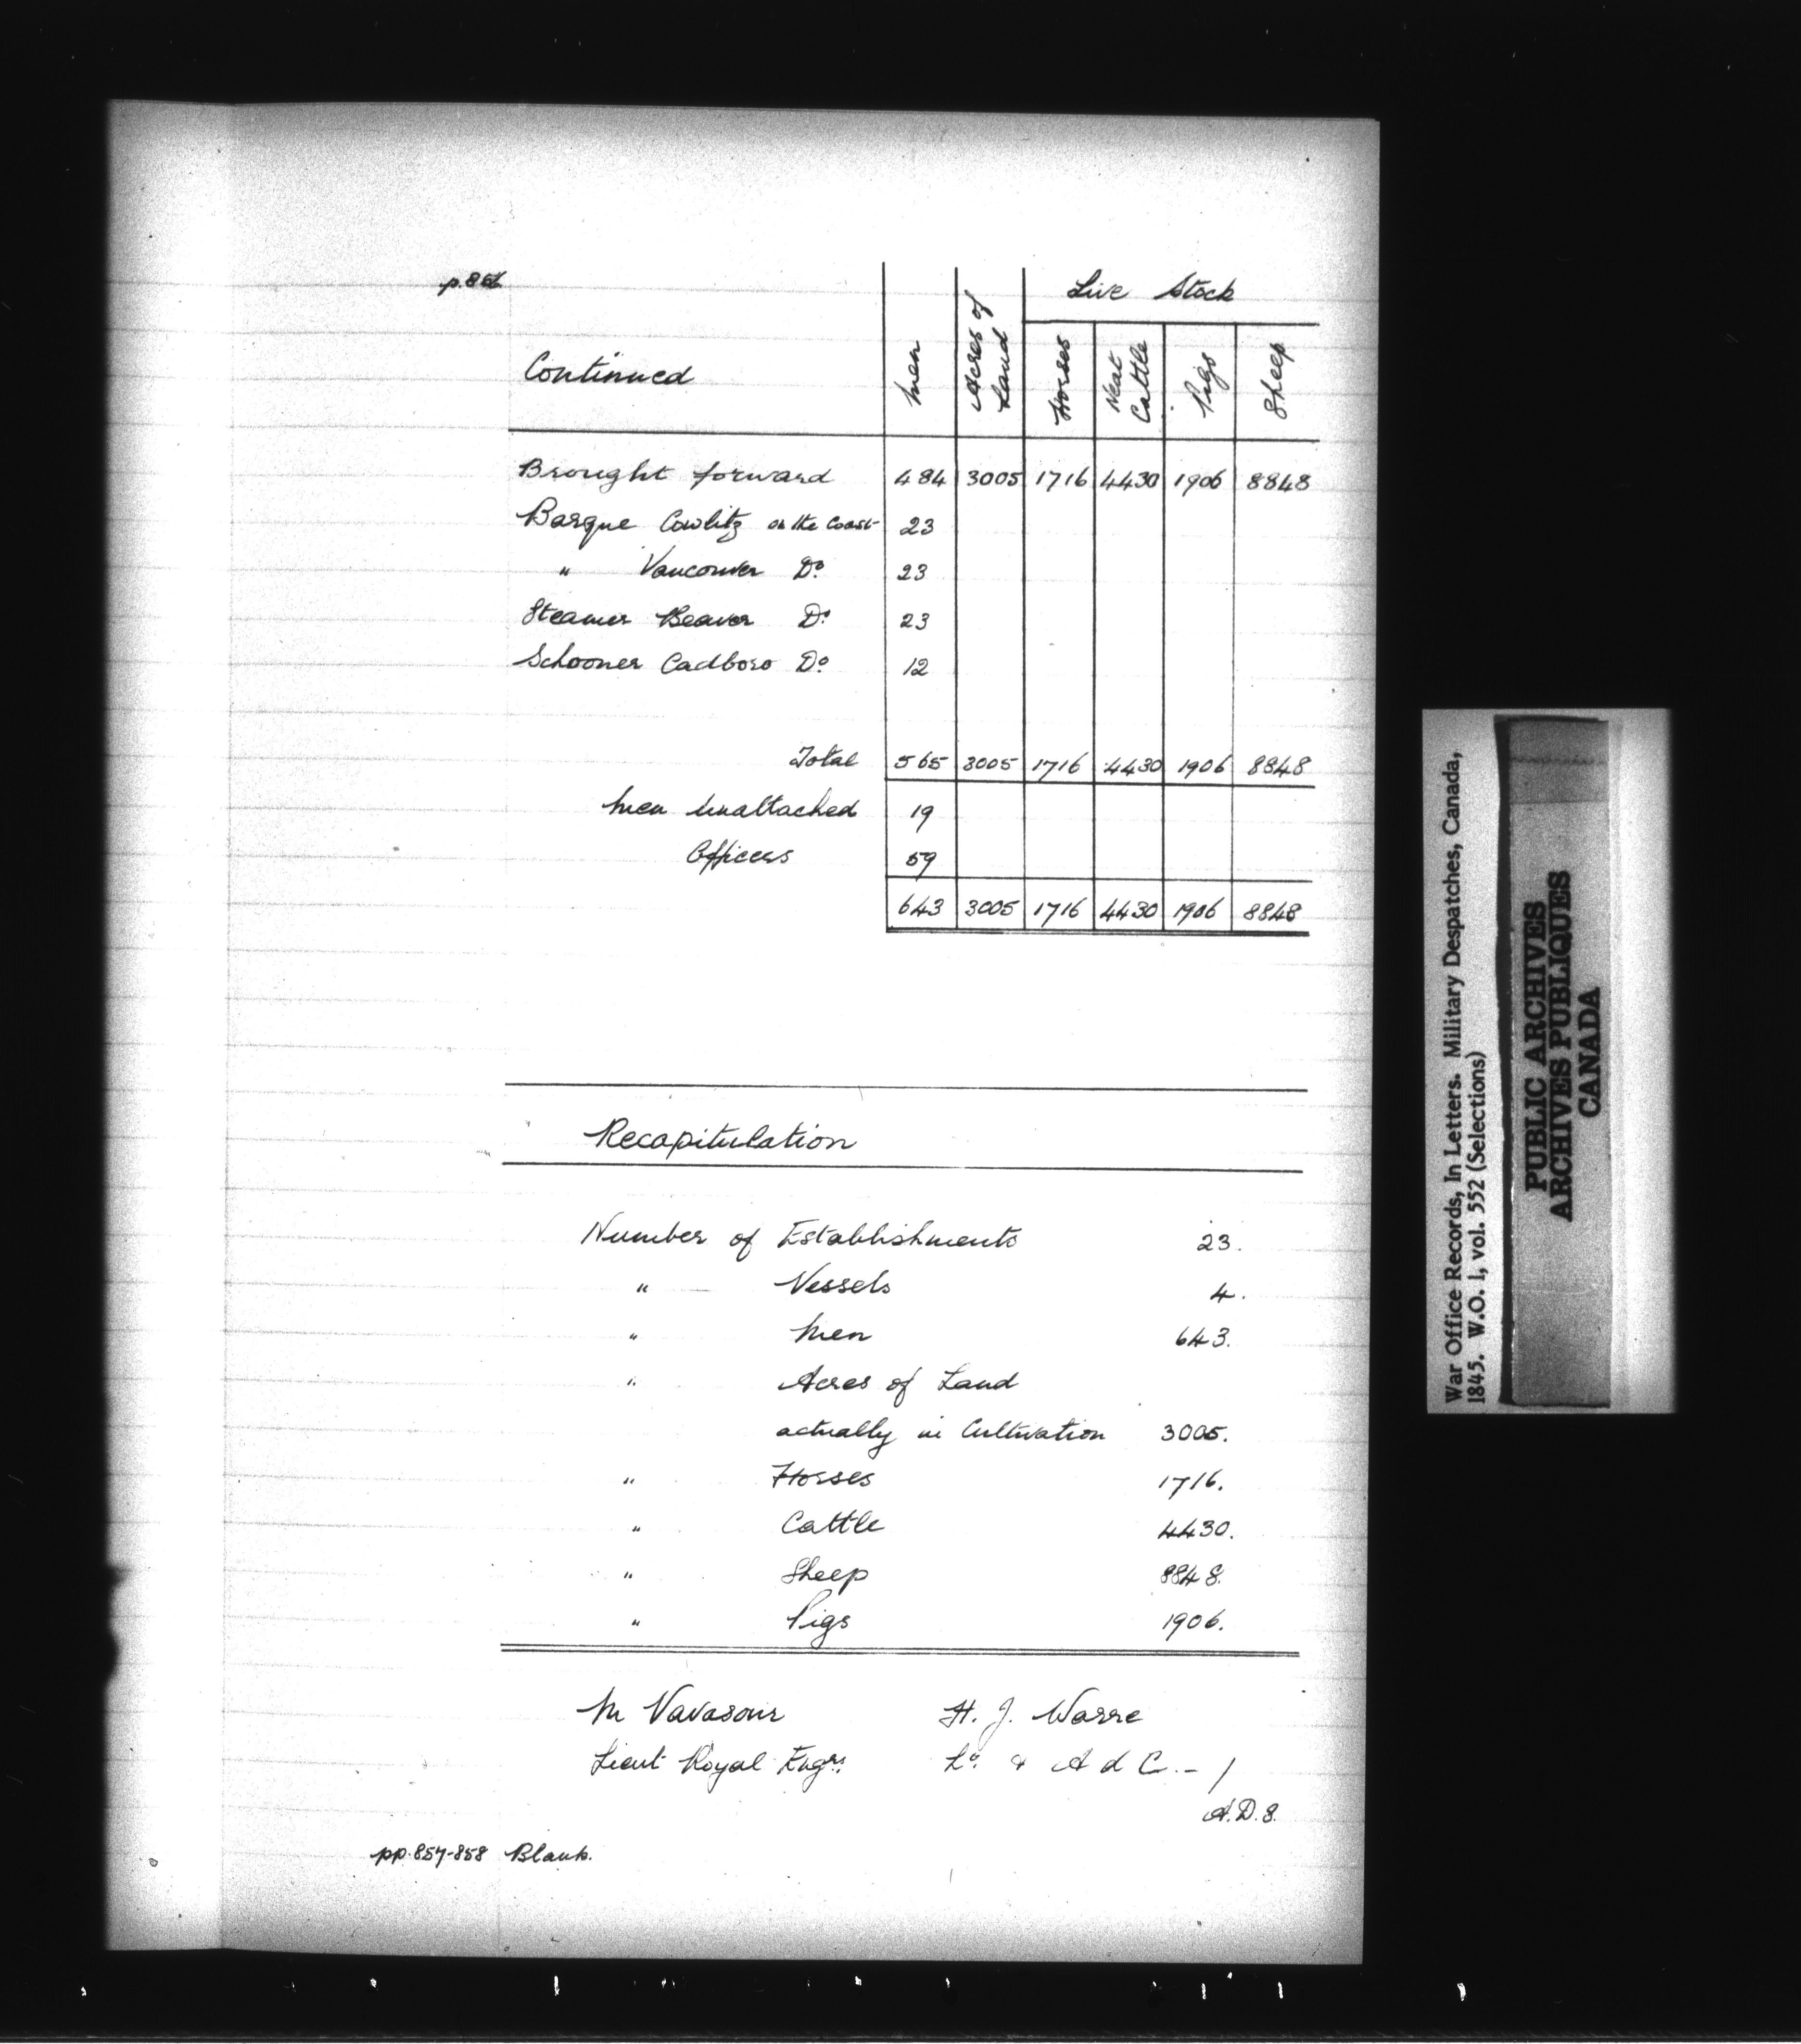 p.856
Continued
Men
Acres of Land
Live Stock
Horses
Neat Cattle
Pigs
Sheep
Brought forward 484 3005 1716 4430 1906 8848
Barque Cowlitz on the Coast 23
" Vancouver Do. 23
Steamer Beaver Do. 23
Schooner Cadboro Do. 12
Total 565 3005 1716 4430 1906 8848
Men Unattached 19
Officers 59
643 3005 1716 4430 1906 8848
Recapitulation
Number of Establishments 23.
" Vessels 4.
" Men 643.
" Acres of Land
actually in Cultivation 3005.
" Horses 1716.
" Cattle 4430.
" Sheep 8848.
" Pigs 1906.
M Vavasour H. J. Warre
Lieut Royal Engrs. Lt. & A d C. - /
A.D.S.
pp. 857-858 Blank.
War Office Records, In Letters. Military Despatches, Canada,
1845. W.O. 1, vol. 552 (Selections)
PUBLIC ARCHIVES
ARCHIVES PUBLIQUES
CANADA